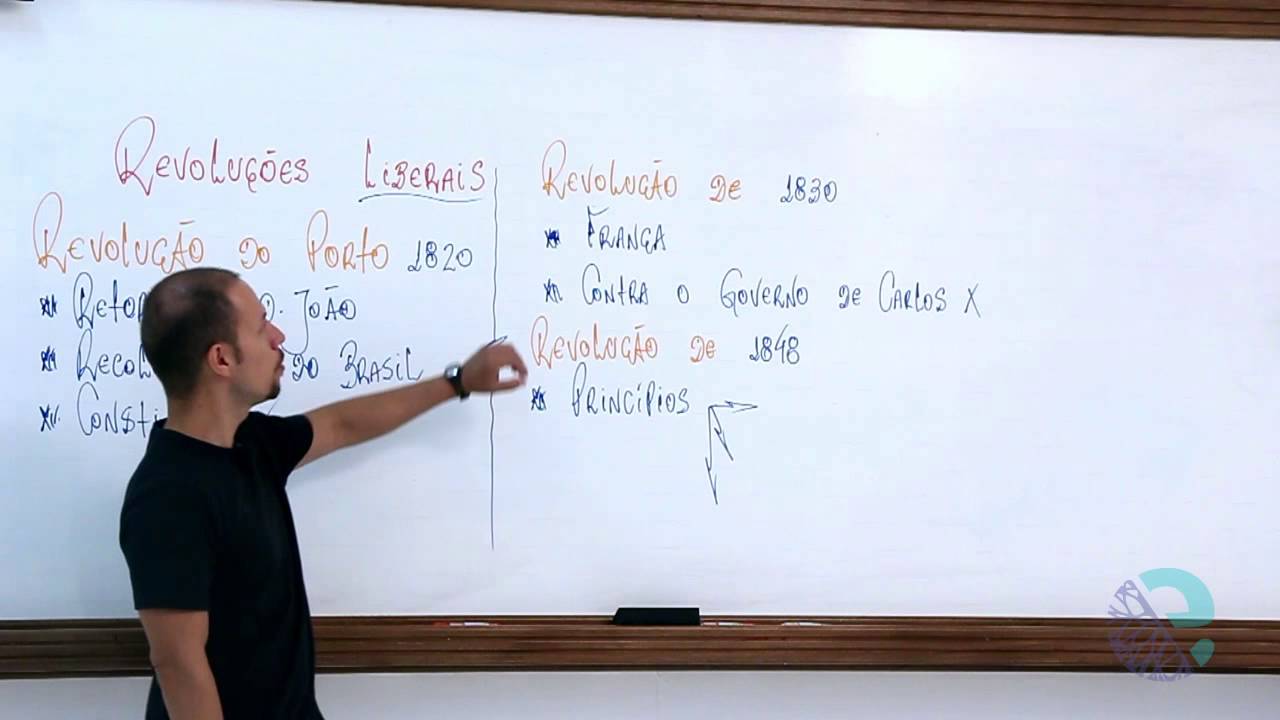 Revoluções Liberais
Revolução do Porto 1820
D. João
do Brasil
Revolução de 1830
França
Contra o Governo de Carlos X
Revolução de 1848
Princípios